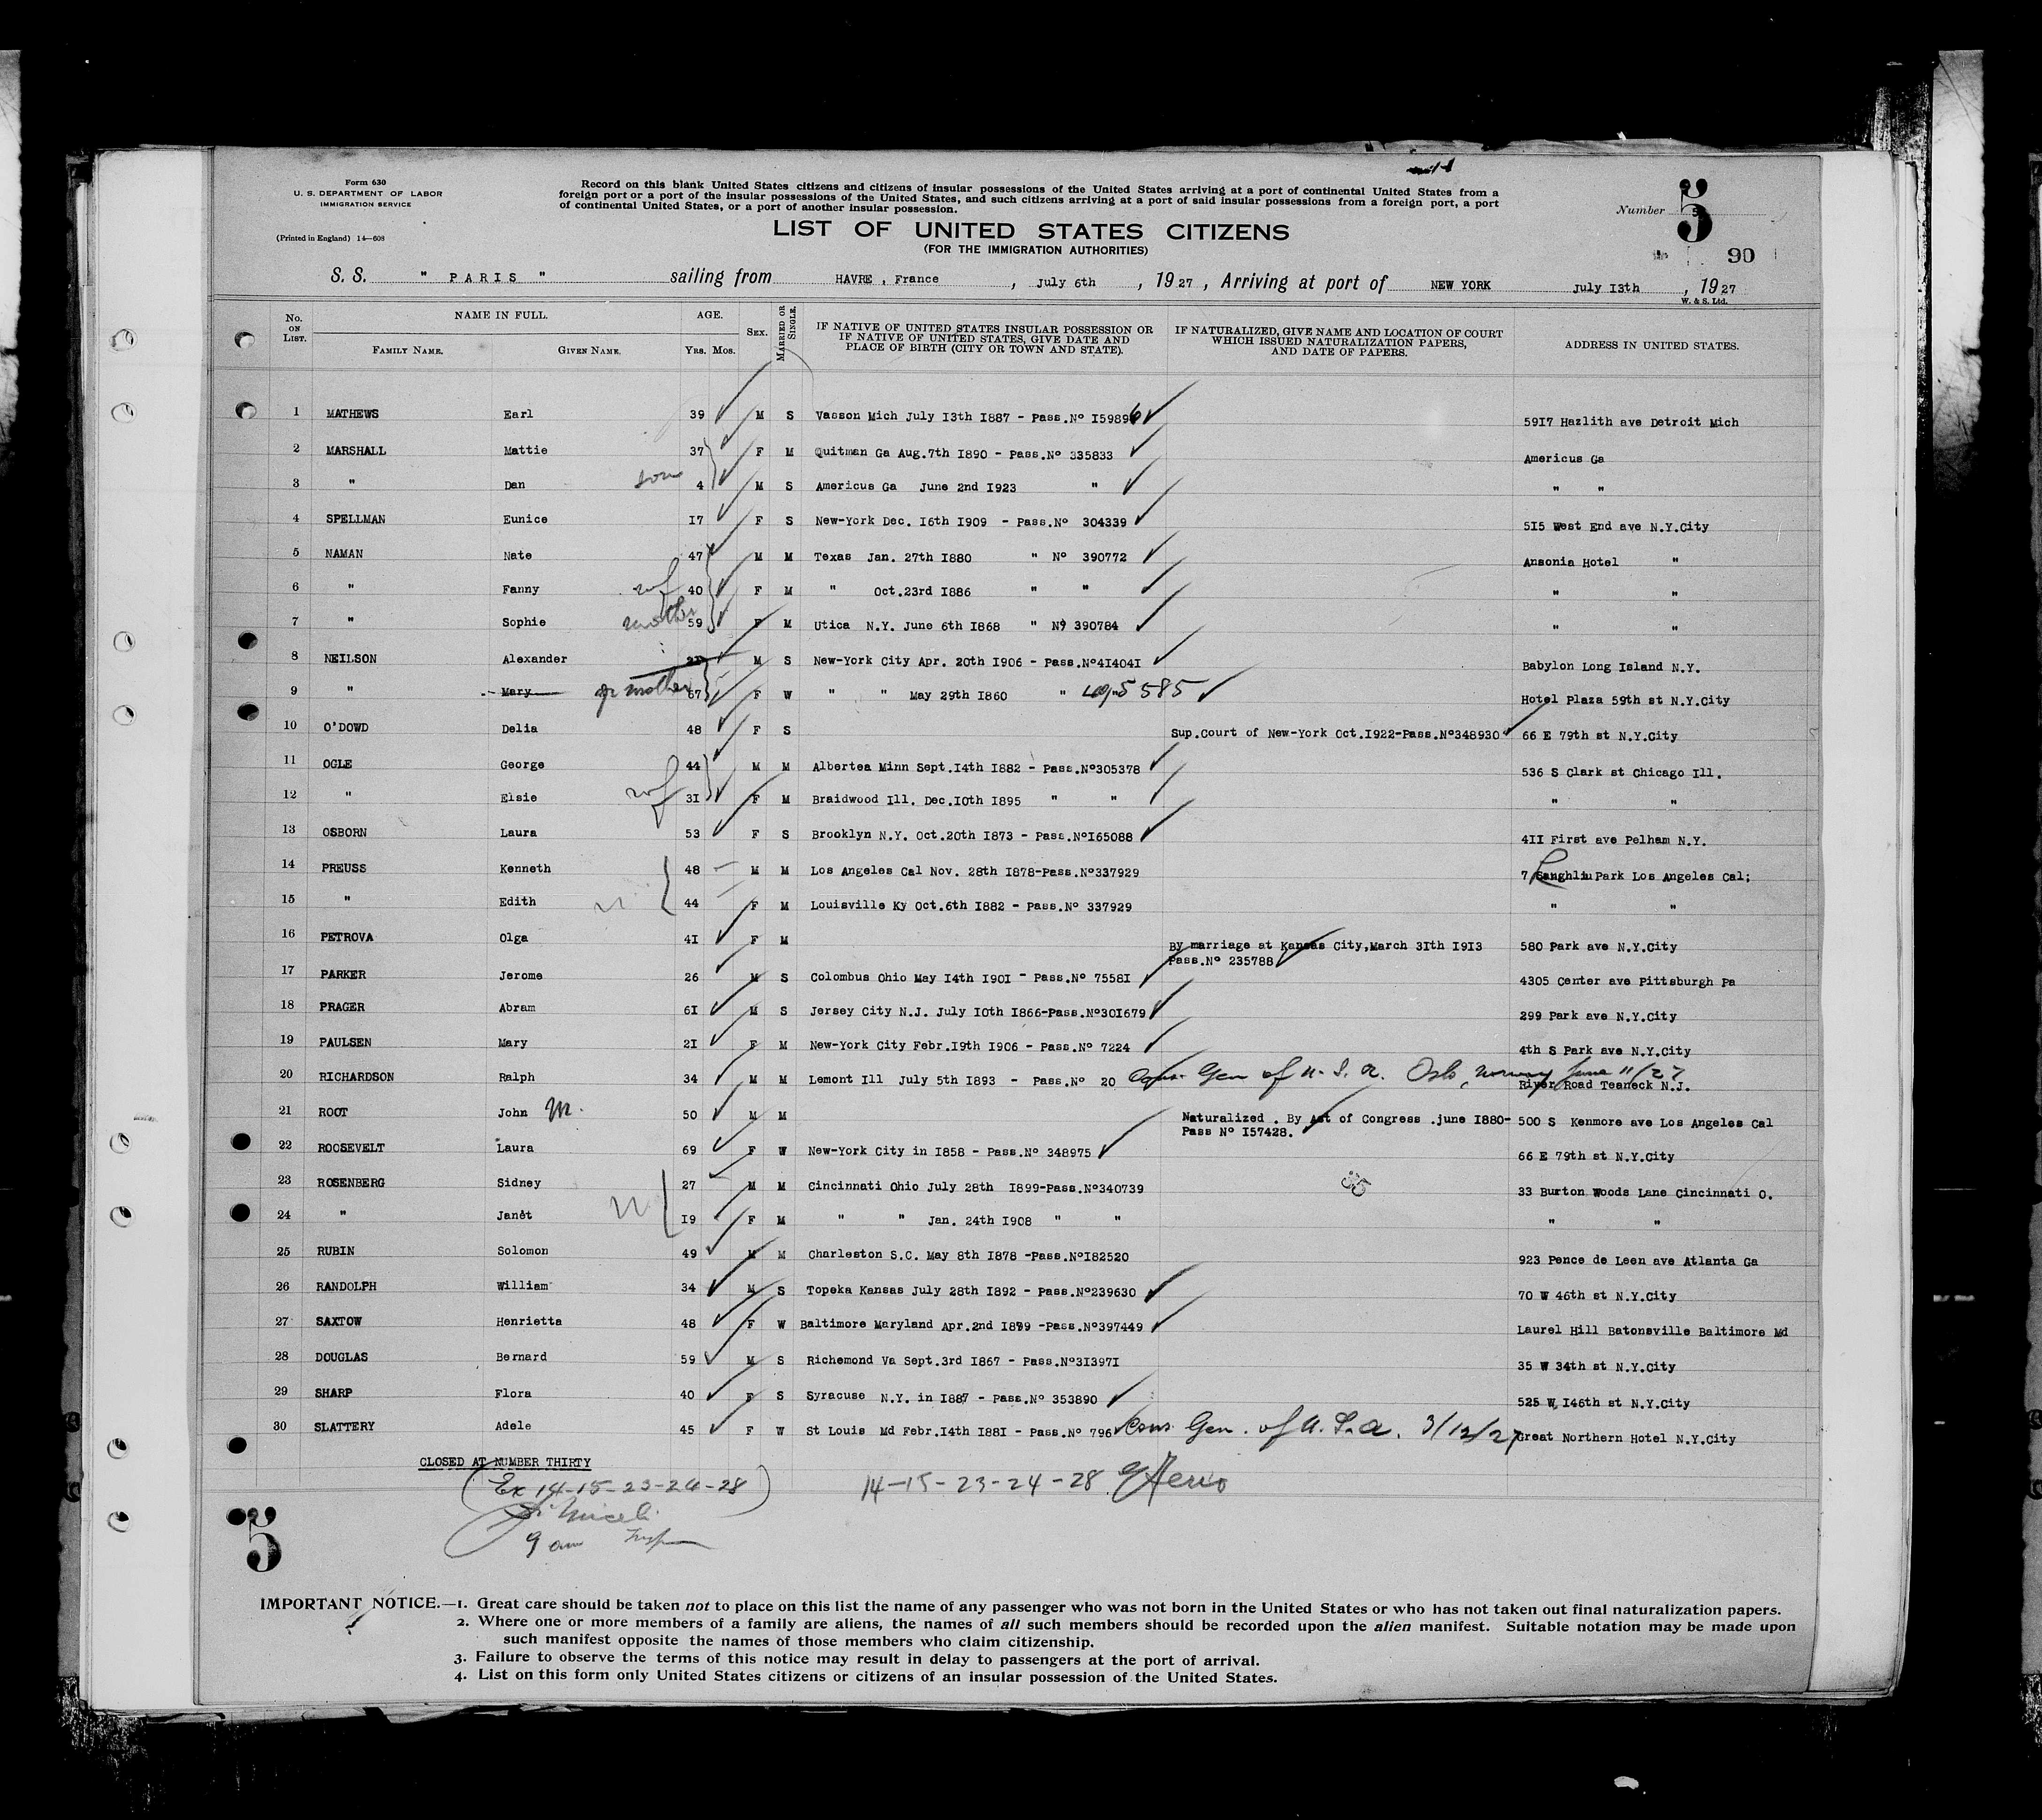 Form 630
U. S. DEPARTMENT OF LABOR
IMMIGRATION SERVICE
(Printed in England) 14—608
Record on this blank United States citizens and citizens of insular possessions of the United States arriving at a port of continental United States from a
foreign port or a port of the insular possessions of the United States, and such citizens arriving at a port of said insular possessions from a foreign port, a port
of continental United States, or a port of another insular possession.
LIST OF UNITED STATES CITIZENS
(FOR THE IMMIGRATION AUTHORITIES)
Number 5
5
90
S. S. " PARIS " sailing from HAVRE , France , July 6th , 1927 , Arriving at port of NEW YORK July I3th , 1927
W. & S. Ltd.
No. ON LIST. NAME IN FULL. FAMILY NAME. GIVEN NAME. AGE. YRS. MOS. SEX. MARRIED OR SINGLE. IF NATIVE OF UNITED STATES INSULAR POSSESSION OR IF NATIVE OF UNITED STATES, GIVE DATE AND PLACE OF BIRTH (CITY OR TOWN AND STATE). IF NATURALIZED, GIVE NAME AND LOCATION OF COURT WHICH ISSUED NATURALIZATION PAPERS, AND DATE OF PAPERS. ADDRESS IN UNITED STATES.
1 MATHEWS Earl 39 M S Vasson Mich July I3th I887 - Pass.Nº I59896 59I7 Hazlith ave Detroit Mich
2 MARSHALL Mattie 37 F M Quitman Ga Aug.7th I890 - Pass.Nº 335833 Americus Ga
3 " Dan son 4 M S Americus Ga June 2nd I923 " " "
4 SPELLMAN Eunice I7 F S New-York Dec. I6th I909 - Pass.Nº 304339 5I5 West End ave N.Y.City
5 NAMAN Nate 47 M M Texas Jan. 27th I880 " Nº 390772 Ansonia Hotel "
6 " Fanny wf 40 F M " Oct.23rd I886 " " " "
7 " Sophie mother 59 F M Utica N.Y. June 6th I868 " Nº 390784 " "
8 NEILSON Alexander M S New-York City Apr. 20th I906 - Pass.Nº4I404I Babylon Long Island N.Y.
9 " Mary gr mother 67 F W " " May 29th I860 " 5585 Hotel Plaza 59th st N.Y.City
10 O'DOWD Delia 48 F S Sup.court of New-York Oct.I922-Pass.Nº348930 66 E 79th st N.Y.City
11 OGLE George 44 M M Albertea Minn Sept.I4th I882 - Pass.Nº305378 536 S Clark st Chicago Ill.
12 " Elsie wf 3I F M Braidwood Ill. Dec.I0th I895 " " " "
13 OSBORN Laura 53 F S Brooklyn N.Y. Oct.20th I873 - Pass.NºI65088 4II First ave Pelham N.Y.
14 PREUSS Kenneth 48 M M Los Angeles Cal Nov. 28th I878-Pass.Nº337929 7 Park Los Angeles Cal;
15 " Edith 44 F M Louisville Ky Oct.6th I882 - Pass.Nº 337929 " "
16 PETROVA Olga 4I F M By marriage at Kansas City,March 3Ith I9I3 580 Park ave N.Y.City
Pass.Nº 235788
17 PARKER Jerome 26 M S Colombus Ohio May I4th I90I - Pass.Nº 7558I 4305 Center ave Pittsburgh Pa
18 PRAGER Abram 6I M S Jersey City N.J. July I0th I866-Pass.Nº30I679 299 Park ave N.Y.City
19 PAULSEN Mary 2I F M New-York City Febr.I9th I906 - Pass.Nº 7224 4th S Park ave N.Y.City
20 RICHARDSON Ralph 34 M M Lemont Ill July 5th I893 - Pass.Nº 20 Cons. Gen of U. S. A. Oslo, Norway June 11/27 River Road Teaneck N.J.
21 ROOT John M. 50 M M Naturalized . By Act of Congress .june I880- 500 S Kenmore ave Los Angeles Cal
Pass Nº I57428.
22 ROOSEVELT Laura 69 F W New-York City in I858 - Pass.Nº 348975 66 E 79th st N.Y.City
23 ROSENBERG Sidney 27 M M Cincinnati Ohio July 28th I899-Pass.Nº340739 33 Burton Woods Lane Cincinnati O.
24 " Janet I9 F M " " Jan. 24th I908 " " " "
25 RUBIN Solomon 49 M M Charleston S.C. May 8th I878 -Pass.NºI82520 923 Pence de Leen ave Atlanta Ga
26 RANDOLPH William 34 M S Topeka Kansas July 28th I892 - Pass.Nº239630 70 W 46th st N.Y.City
27 SAXTOW Henrietta 48 F W Baltimore Maryland Apr.2nd I879 -Pass.Nº397449 Laurel Hill Batonsville Baltimore Md
28 DOUGLAS Bernard 59 M S Richemond Va Sept.3rd I867 - Pass.Nº3I397I 35 W 34th st N.Y.City
29 SHARP Flora 40 F S Syracuse N.Y. in I887 - Pass.Nº 353890 525 W I46th st N.Y.City
30 SLATTERY Adele 45 F W St Louis Md Febr.I4th I88I - Pass.Nº 796 Cons. Gen. of U. S. A. 3/12/27 Great Northern Hotel N.Y.City
CLOSED AT NUMBER THIRTY
(Ex 14-15-23-24-28)
14-15-23-24-28
9 am Insp
5
IMPORTANT NOTICE.—1. Great care should be taken not to place on this list the name of any passenger who was not born in the United States or who has not taken out final naturalization papers.
2. Where one or more members of a family are aliens, the names of all such members should be recorded upon the alien manifest. Suitable notation may be made upon
such manifest opposite the names of those members who claim citizenship.
3. Failure to observe the terms of this notice may result in delay to passengers at the port of arrival.
4. List on this form only United States citizens or citizens of an insular possession of the United States.